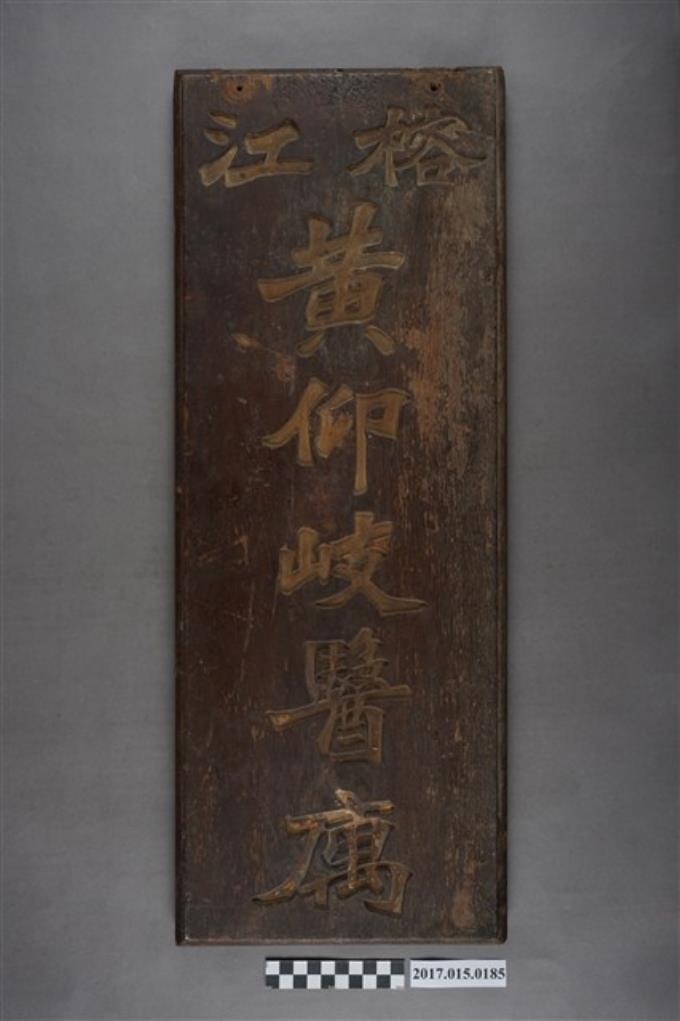 榕江
黄仰岐醫寓
2017.015.0185